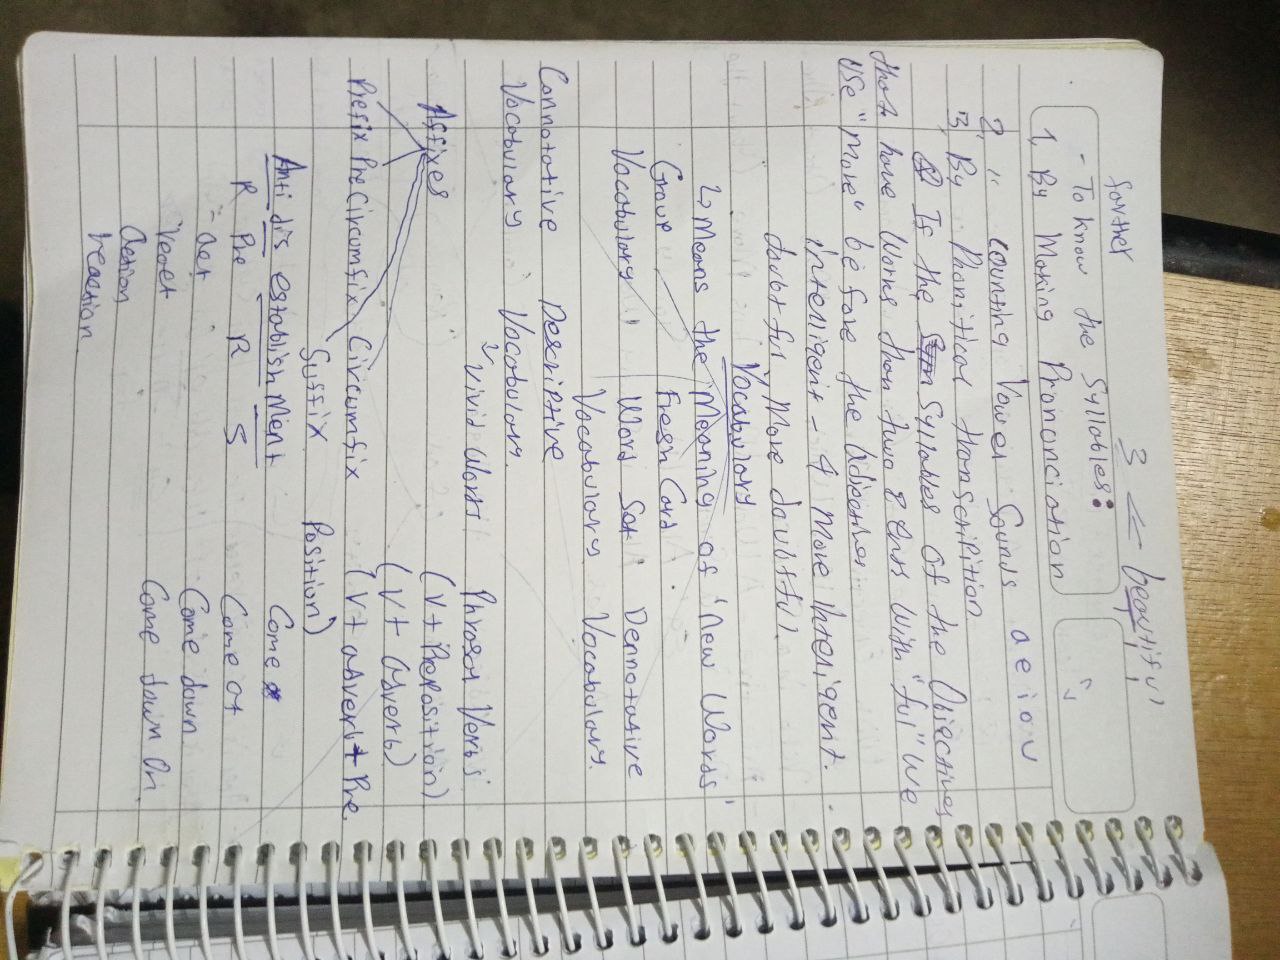 3 <- beautiful
farther
- To know the Syllables:
1, By Making Prononciation
2, " Counting Vowel Sounds a e i o u
3, By Phonitical transcription
If the Syllables of the Objectives
that have Works than two & ends with "ful" we
use "more" before the Adjectives
intelligent - 4 More inteligent.
doubtful More doubtful.
Vocabulary
↳ Means the Meaning of "New Words"
Group Fresh Card
Vocabulary Word Sat Dennotative
Vocabulary Vocabulary.
Connotative Descriptive
Vocabulary Vocabulary.
Vivid Worti Phrasal Verbs
Affixes (V+ Preposition)
(V+ Adverb)
Prefix PreCircumfix Circumfix (V+ adverb + Pre
Suffix Position)
Anti dis establish Ment Come
R Pre R S Come at
- act Come down
react Come down on.
action
reaction